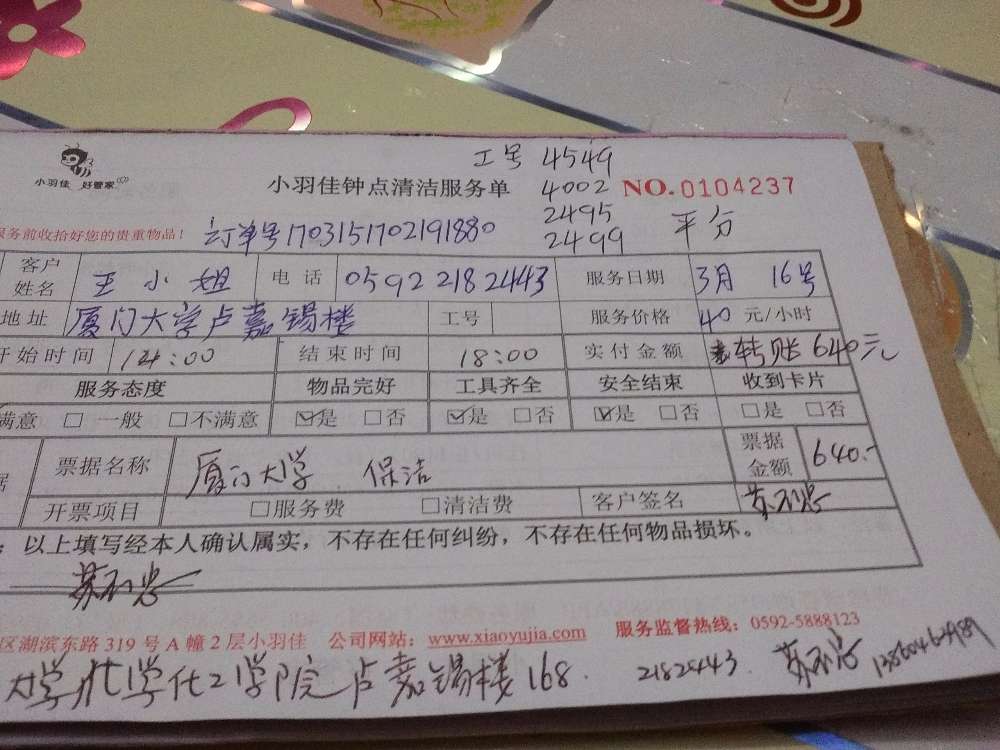 工号 4549
小羽佳 好管家 小羽佳钟点清洁服务单 4002 NO.0104237
2495
服务前收拾好您的贵重物品！ 订单号1703151702191880 2499 平分
客户姓名 王小姐 电话 0592 2182443 服务日期 3月 16号
地址 厦门大学卢嘉锡楼 工号 服务价格 40 元/小时
开始时间 14:00 结束时间 18:00 实付金额 转账640元
服务态度 物品完好 工具齐全 安全结束 收到卡片
满意 □ 一般 □不满意 ☑是 □否 ☑是 □否 ☑是 □否 □是 □否
票据名称 厦门大学 保洁 票据金额 640.-
据 开票项目 □服务费 □清洁费 客户签名
：以上填写经本人确认属实，不存在任何纠纷，不存在任何物品损坏。
区湖滨东路 319 号 A 幢 2 层小羽佳 公司网站：www.xiaoyujia.com 服务监督热线：0592-5888123
大学化学化工学院卢嘉锡楼168. 2182443